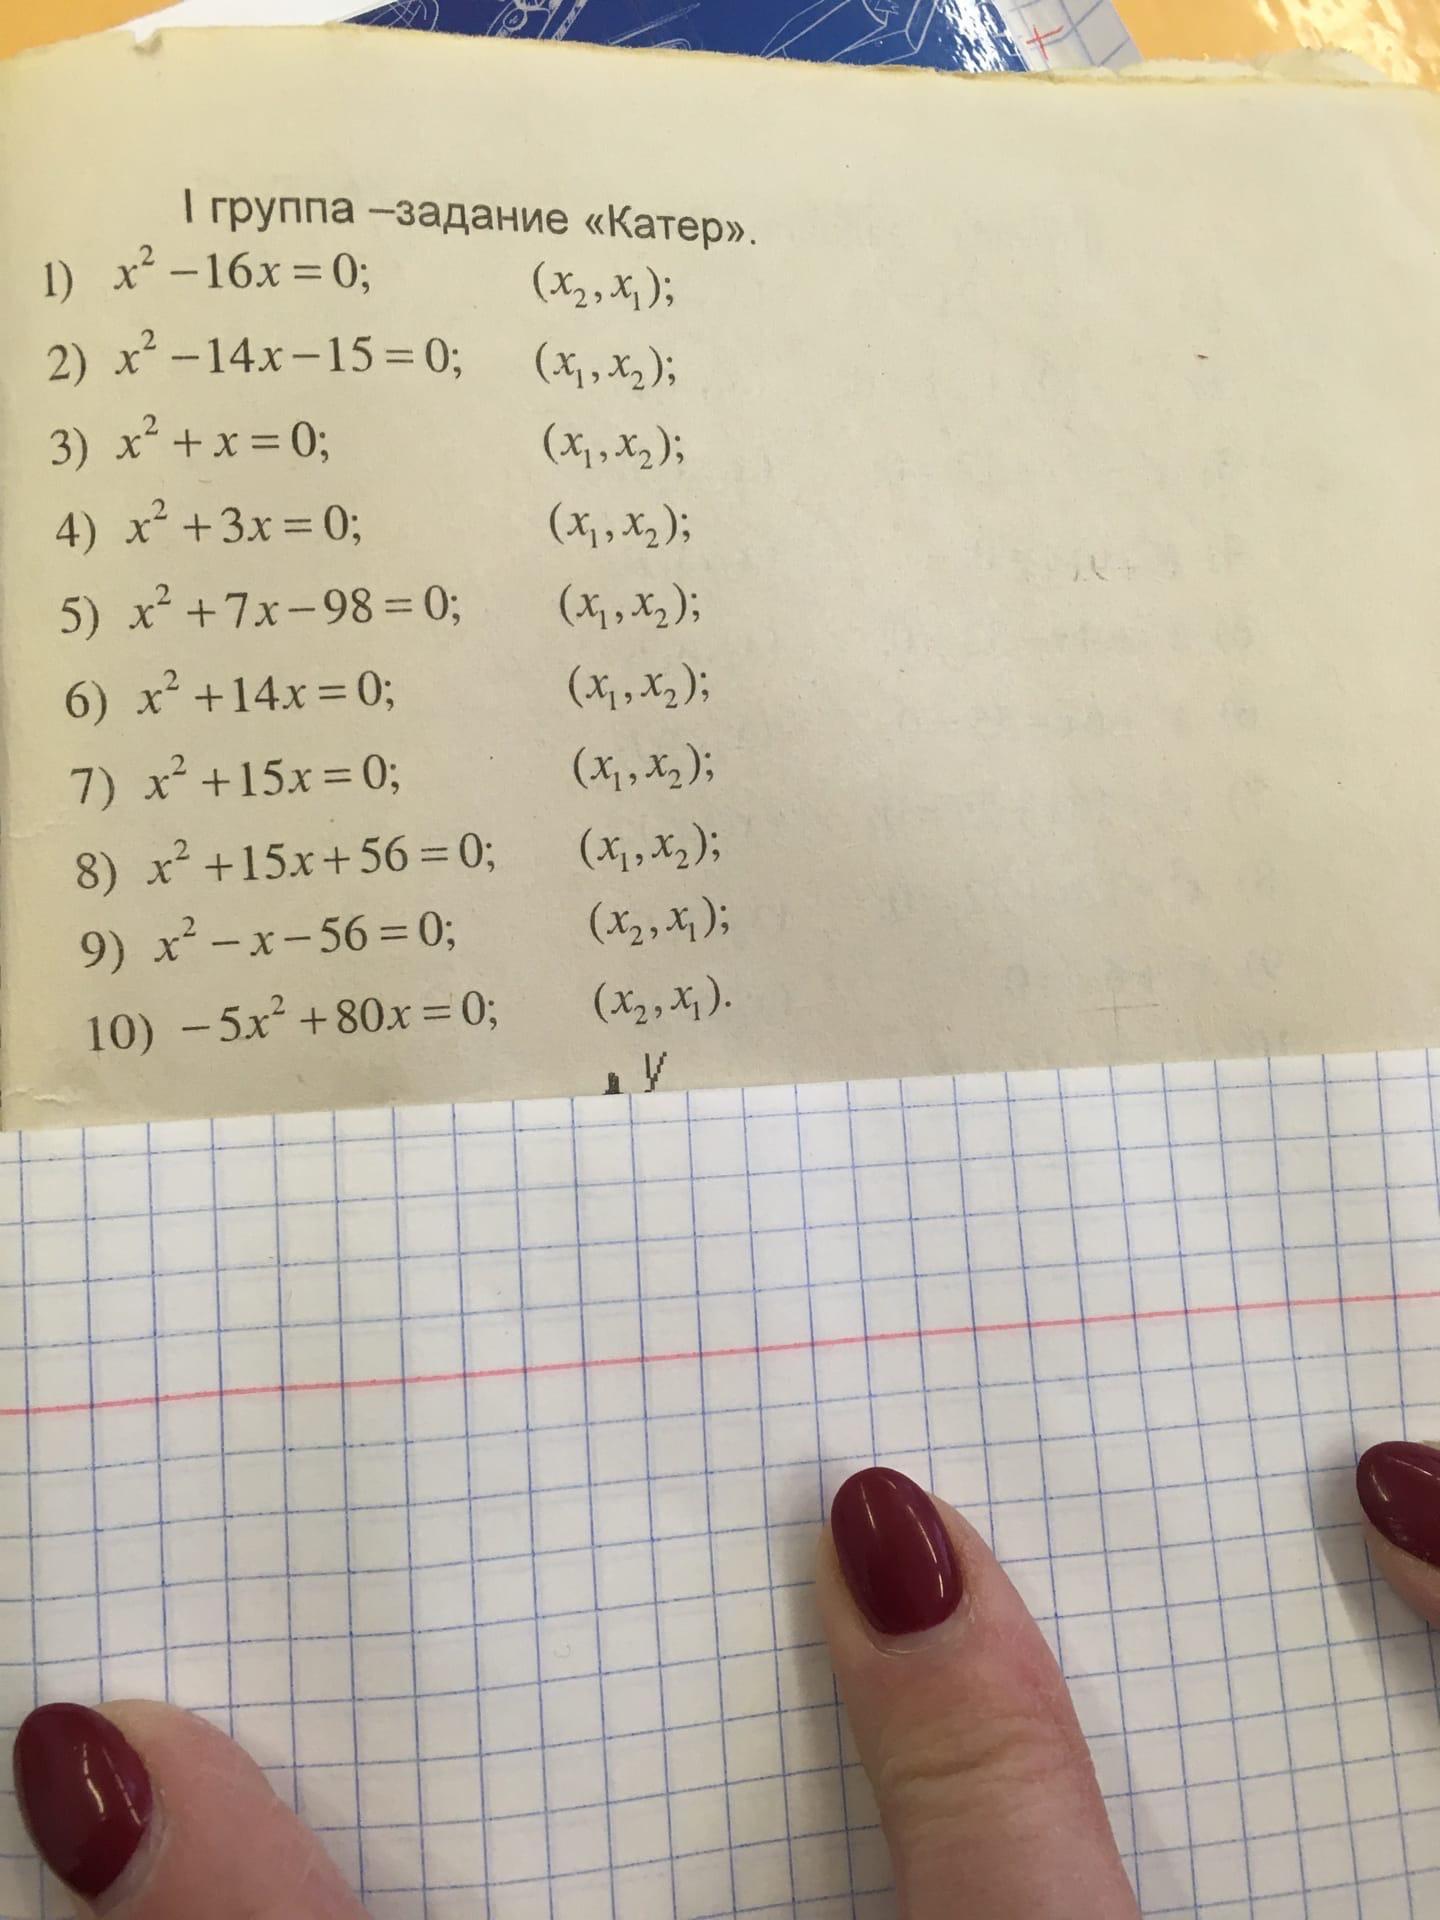 I группа –задание «Катер».
1) x² –16x = 0; (x₂, x₁);
2) x² –14x–15 = 0; (x₁, x₂);
3) x² + x = 0; (x₁, x₂);
4) x² +3x = 0; (x₁, x₂);
5) x² +7x–98 = 0; (x₁, x₂);
6) x² +14x = 0; (x₁, x₂);
7) x² +15x = 0; (x₁, x₂);
8) x² +15x+56 = 0; (x₁, x₂);
9) x² – x–56 = 0; (x₂, x₁);
10) –5x² +80x = 0; (x₂, x₁).